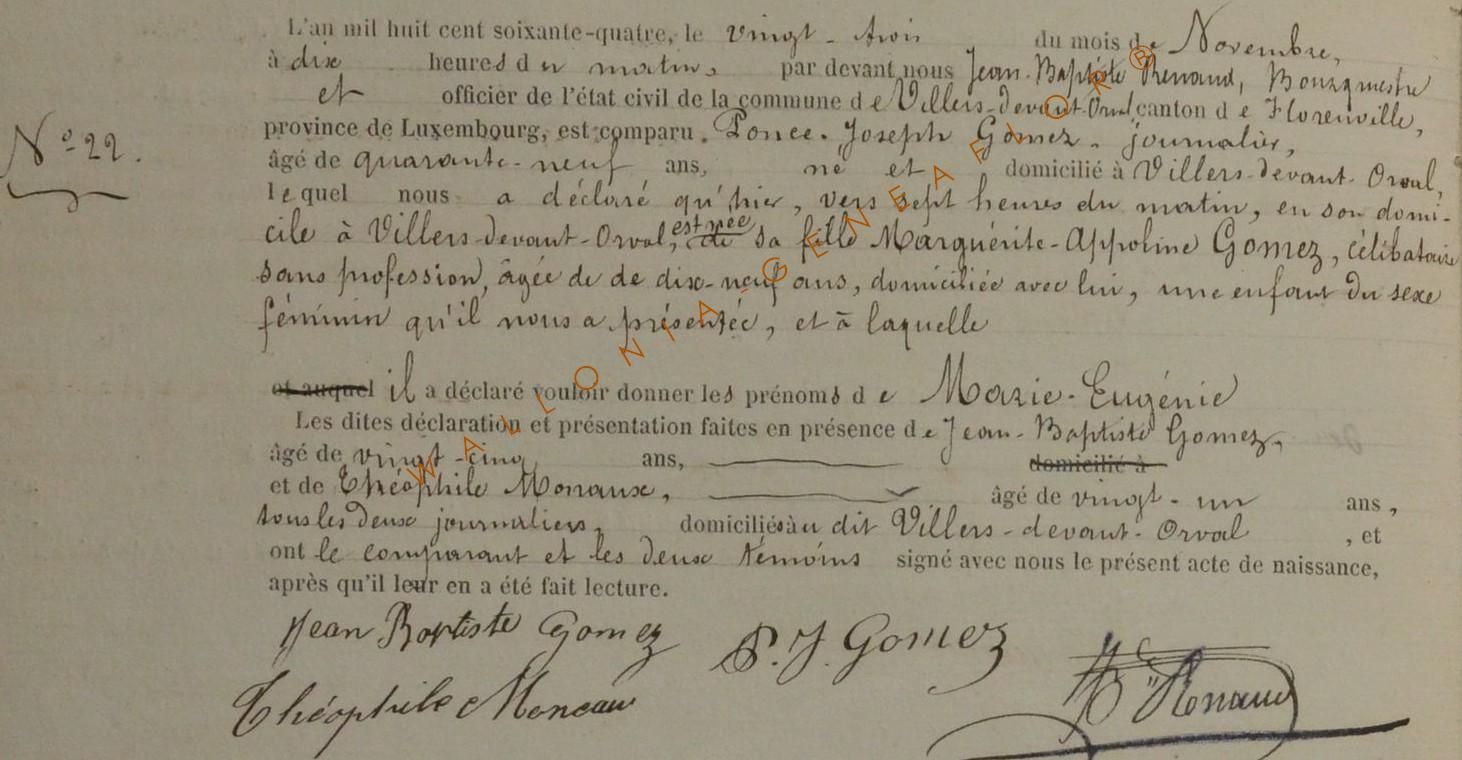 L'an mil huit cent soixante-quatre, le vingt-trois du mois de Novembre,
à dix heures du matin, par devant nous Jean-Baptiste Renaud, Bourgmestre
et officier de l'état civil de la commune de Villers-devant-Orval canton de Florenville,
province de Luxembourg, est comparu Ponce-Joseph Gomez, journalier,
N° 22.
âgé de quarante-neuf ans, né et domicilié à Villers-devant-Orval,
lequel nous a déclaré qu'hier, vers sept heures du matin, en son domi-
cile à Villers-devant-Orval, est née de sa fille Marguérite-Appoline Gomez, célibataire
sans profession, âgée de de dix-neuf ans, domiciliée avec lui, une enfant du sexe
féminin qu'il nous a présentée, et à laquelle
et auquel il a déclaré vouloir donner les prénoms de Marie-Eugénie
Les dites déclaration et présentation faites en présence de Jean-Baptiste Gomez,
âgé de vingt-cinq ans, domicilié à
et de Théophile Monaux, âgé de vingt-un ans,
tous les deux journaliers, domiciliés au dit Villers-devant-Orval, et
ont le comparant et les deux témoins signé avec nous le présent acte de naissance,
après qu'il leur en a été fait lecture.
Jean Baptiste Gomez P. J. Gomez
Théophile Moneau Renaud
WALLONIA-GENEAFLOR®